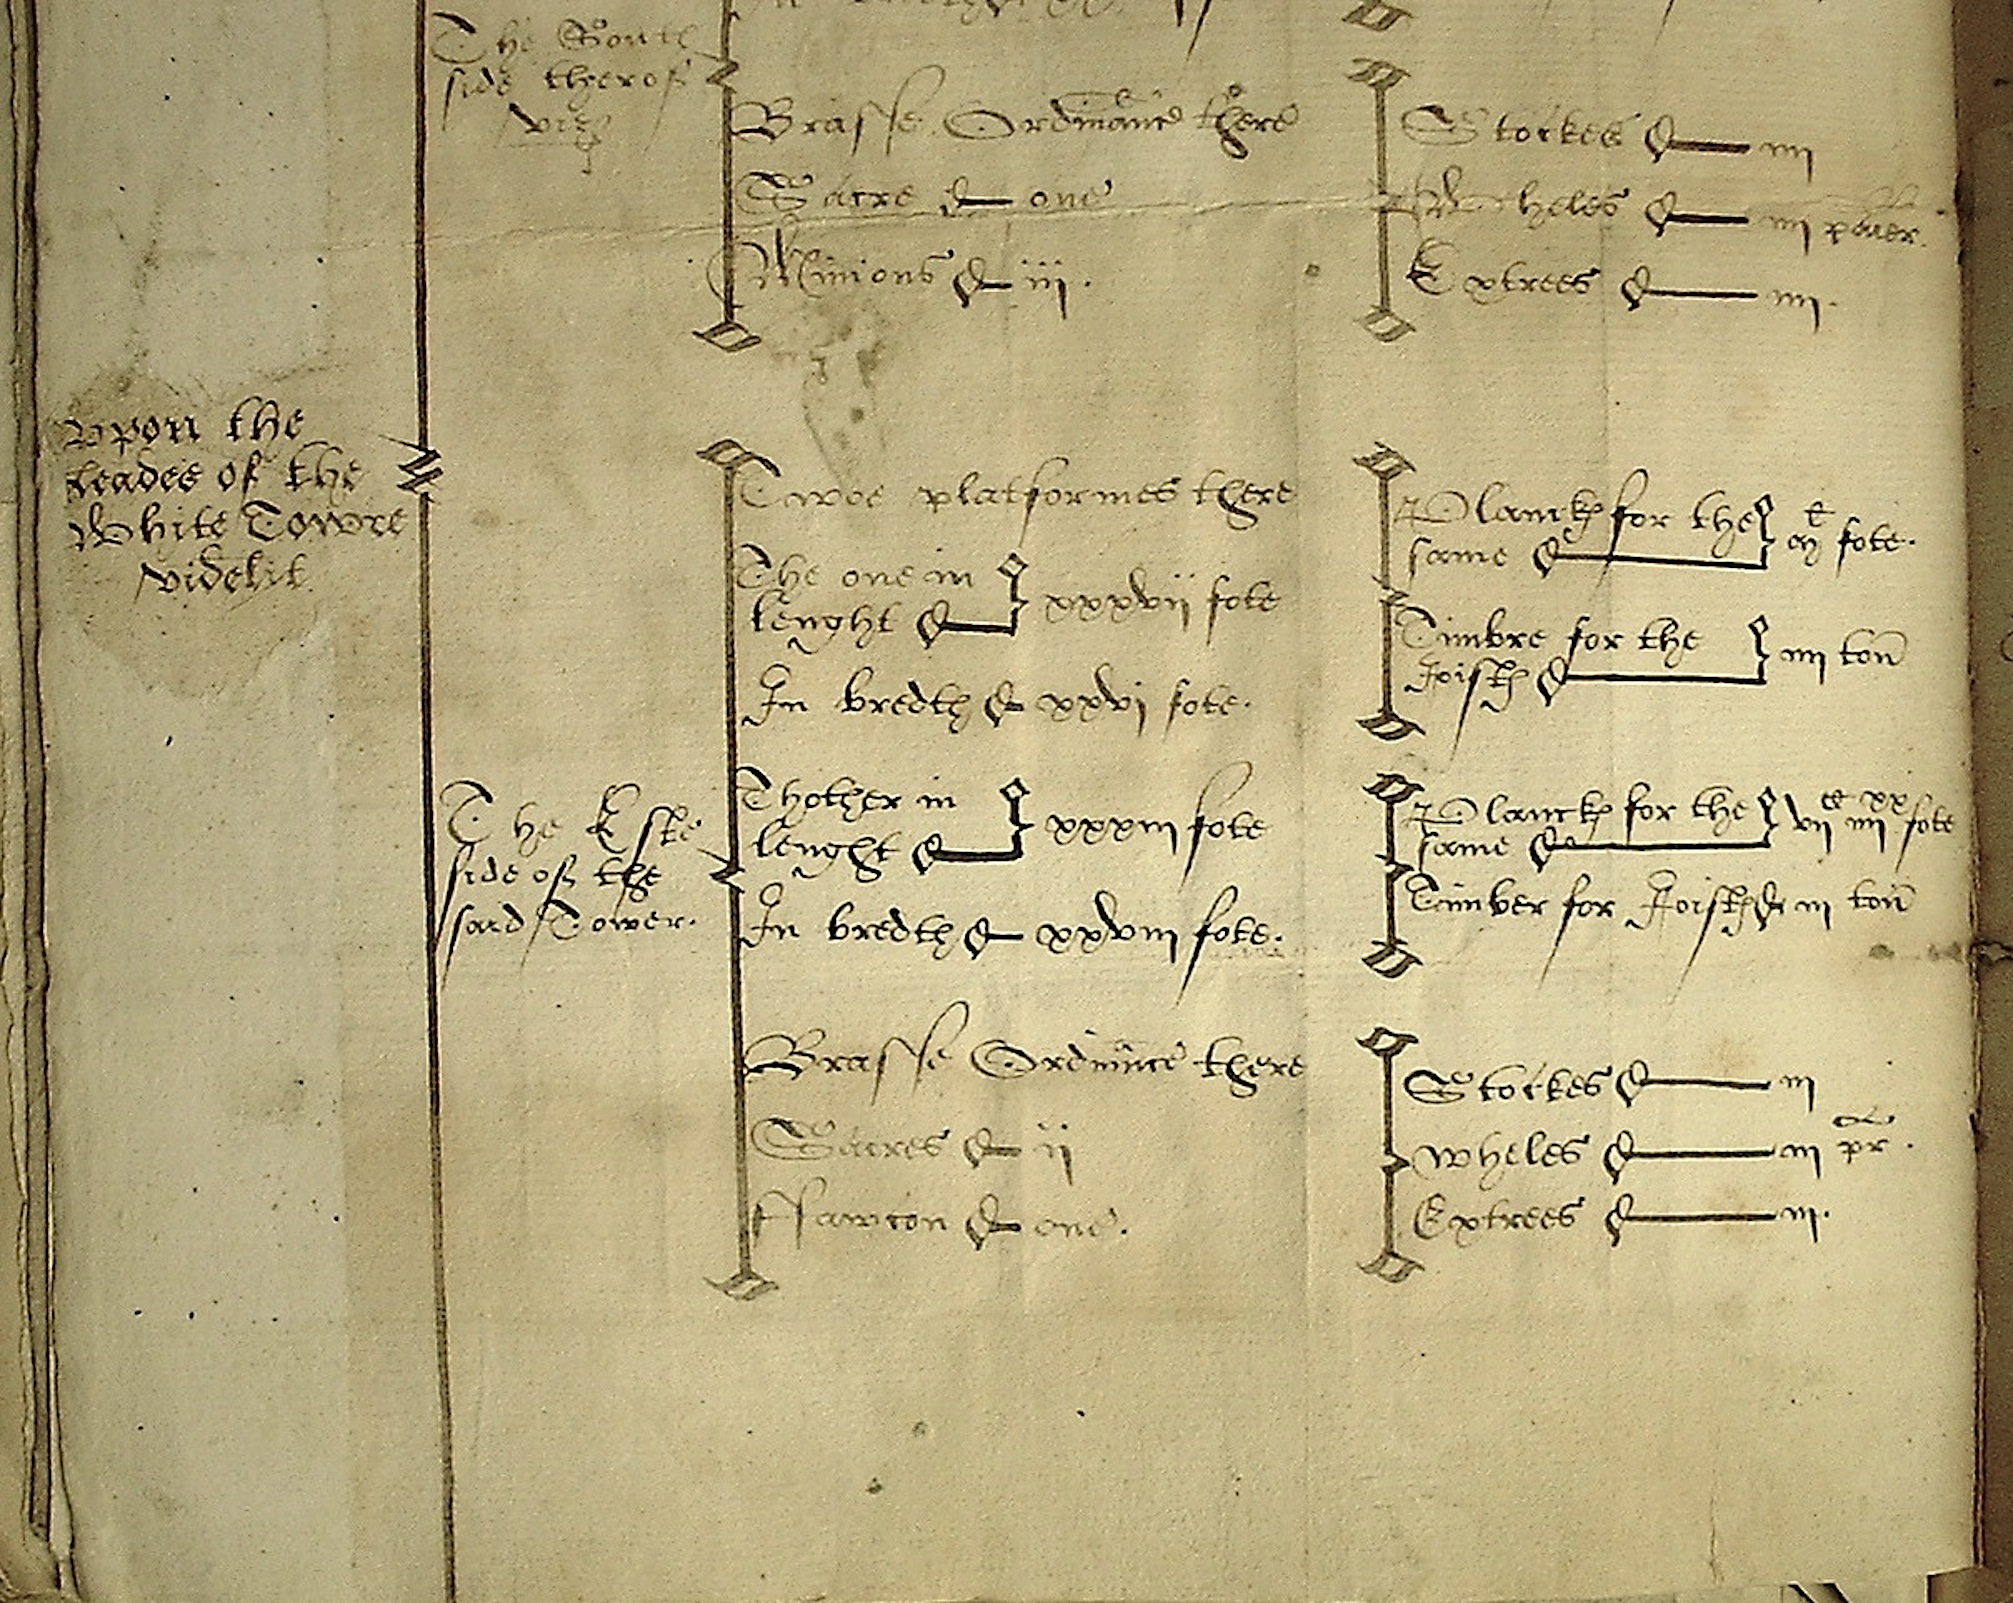 The South
side therof
viz
Brasse Ordinance there
Sacre one
Minions iii.
Stockes iiii
Wheles iiii paier.
Extrees iiii.
Vpon the
leades of the
White Towre
videlit
Twoe platformes there
The one in
lenght xxxvii fote
In bredth xxvi fote.
Planck for the
same fote.
Timbre for the
Joist iiii ton
The Este
side of the
said Tower.
Thother in
lenght xxxiii fote
In bredth xxviii fote.
Planck for the
same vii iiii xx fote
Timber for Joist iii ton
Brasse Ordinance there
Sacres ii
Fawcon one.
Stockes iii
Wheles iii pr.
Extrees iii.